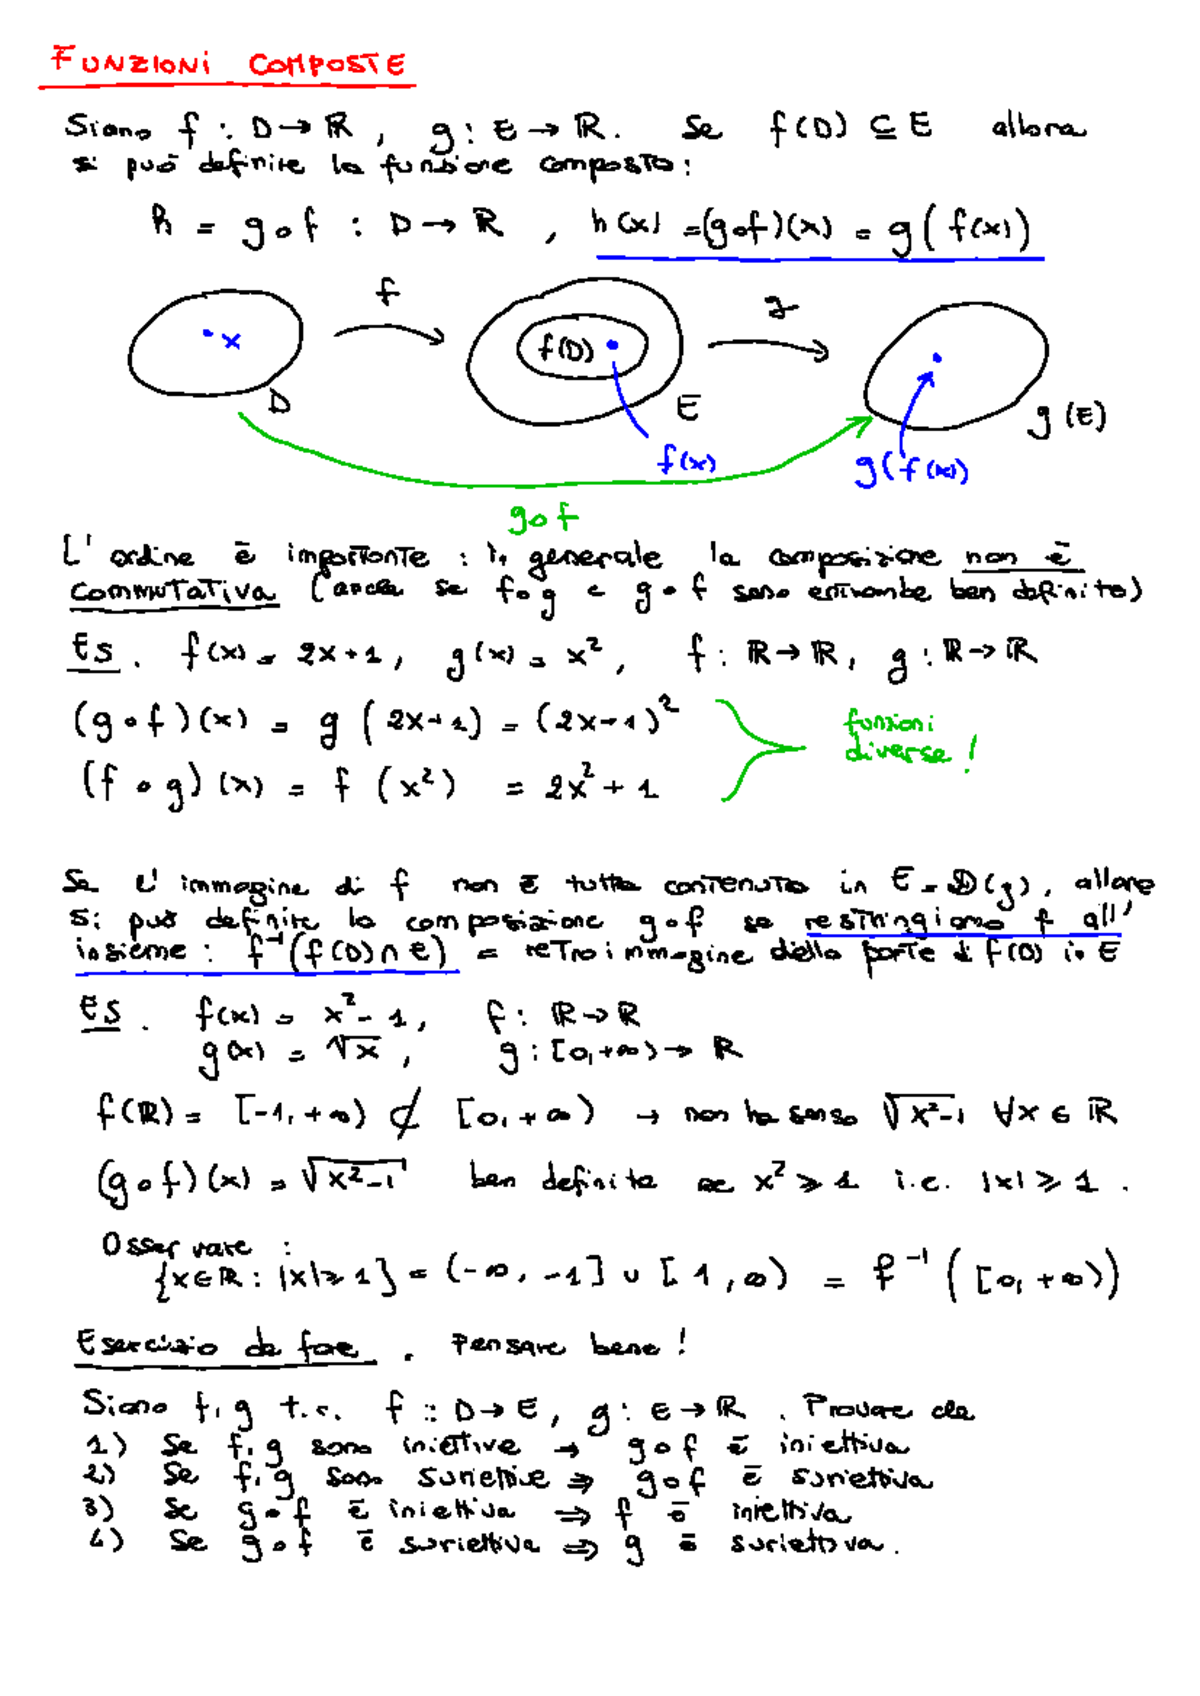 FUNZIONI COMPOSTE
Siano f : D → ℝ , g : E → ℝ . Se f(D) ⊆ E allora
si può definire la funzione composta :
h = g∘f : D → ℝ , h(x) = (g∘f)(x) = g(f(x))
f
g
x
f(D)
D
E
g(E)
f(x)
g(f(x))
g∘f
L'ordine è importante : in generale la composizione non è
commutativa (anche se f∘g e g∘f sono entrambe ben definite)
ES. f(x) = 2x+1 , g(x) = x² , f : ℝ → ℝ , g : ℝ → ℝ
(g∘f)(x) = g(2x+1) = (2x+1)²
funzioni
diverse !
(f∘g)(x) = f(x²) = 2x²+1
Se l'immagine di f non è tutta contenuta in E = D(g), allora
si può definire la composizione g∘f se restringiamo f all'
insieme : f⁻¹(f(D)∩E) = retroimmagine della parte di f(D) in E
ES. f(x) = x²-1 , f : ℝ → ℝ
g(x) = √x , g : [0,+∞) → ℝ
f(ℝ) = [-1,+∞) ⊄ [0,+∞) → non ha senso √x²-1 ∀x ∈ ℝ
(g∘f)(x) = √x²-1 ben definita se x² ⩾ 1 i.e. |x| ⩾ 1 .
Osservare :
{x∈ℝ : |x|⩾1} = (-∞,-1] ∪ [1,∞) = f⁻¹([0,+∞))
Esercizio da fare . Pensare bene !
Siano f, g t.c. f : D → E, g : E → ℝ . Provare che
1) Se f, g sono iniettive → g∘f è iniettiva
2) Se f, g sono suriettive ⇒ g∘f è suriettiva
3) Se g∘f è iniettiva ⇒ f è iniettiva
4) Se g∘f è suriettiva ⇒ g è suriettiva.